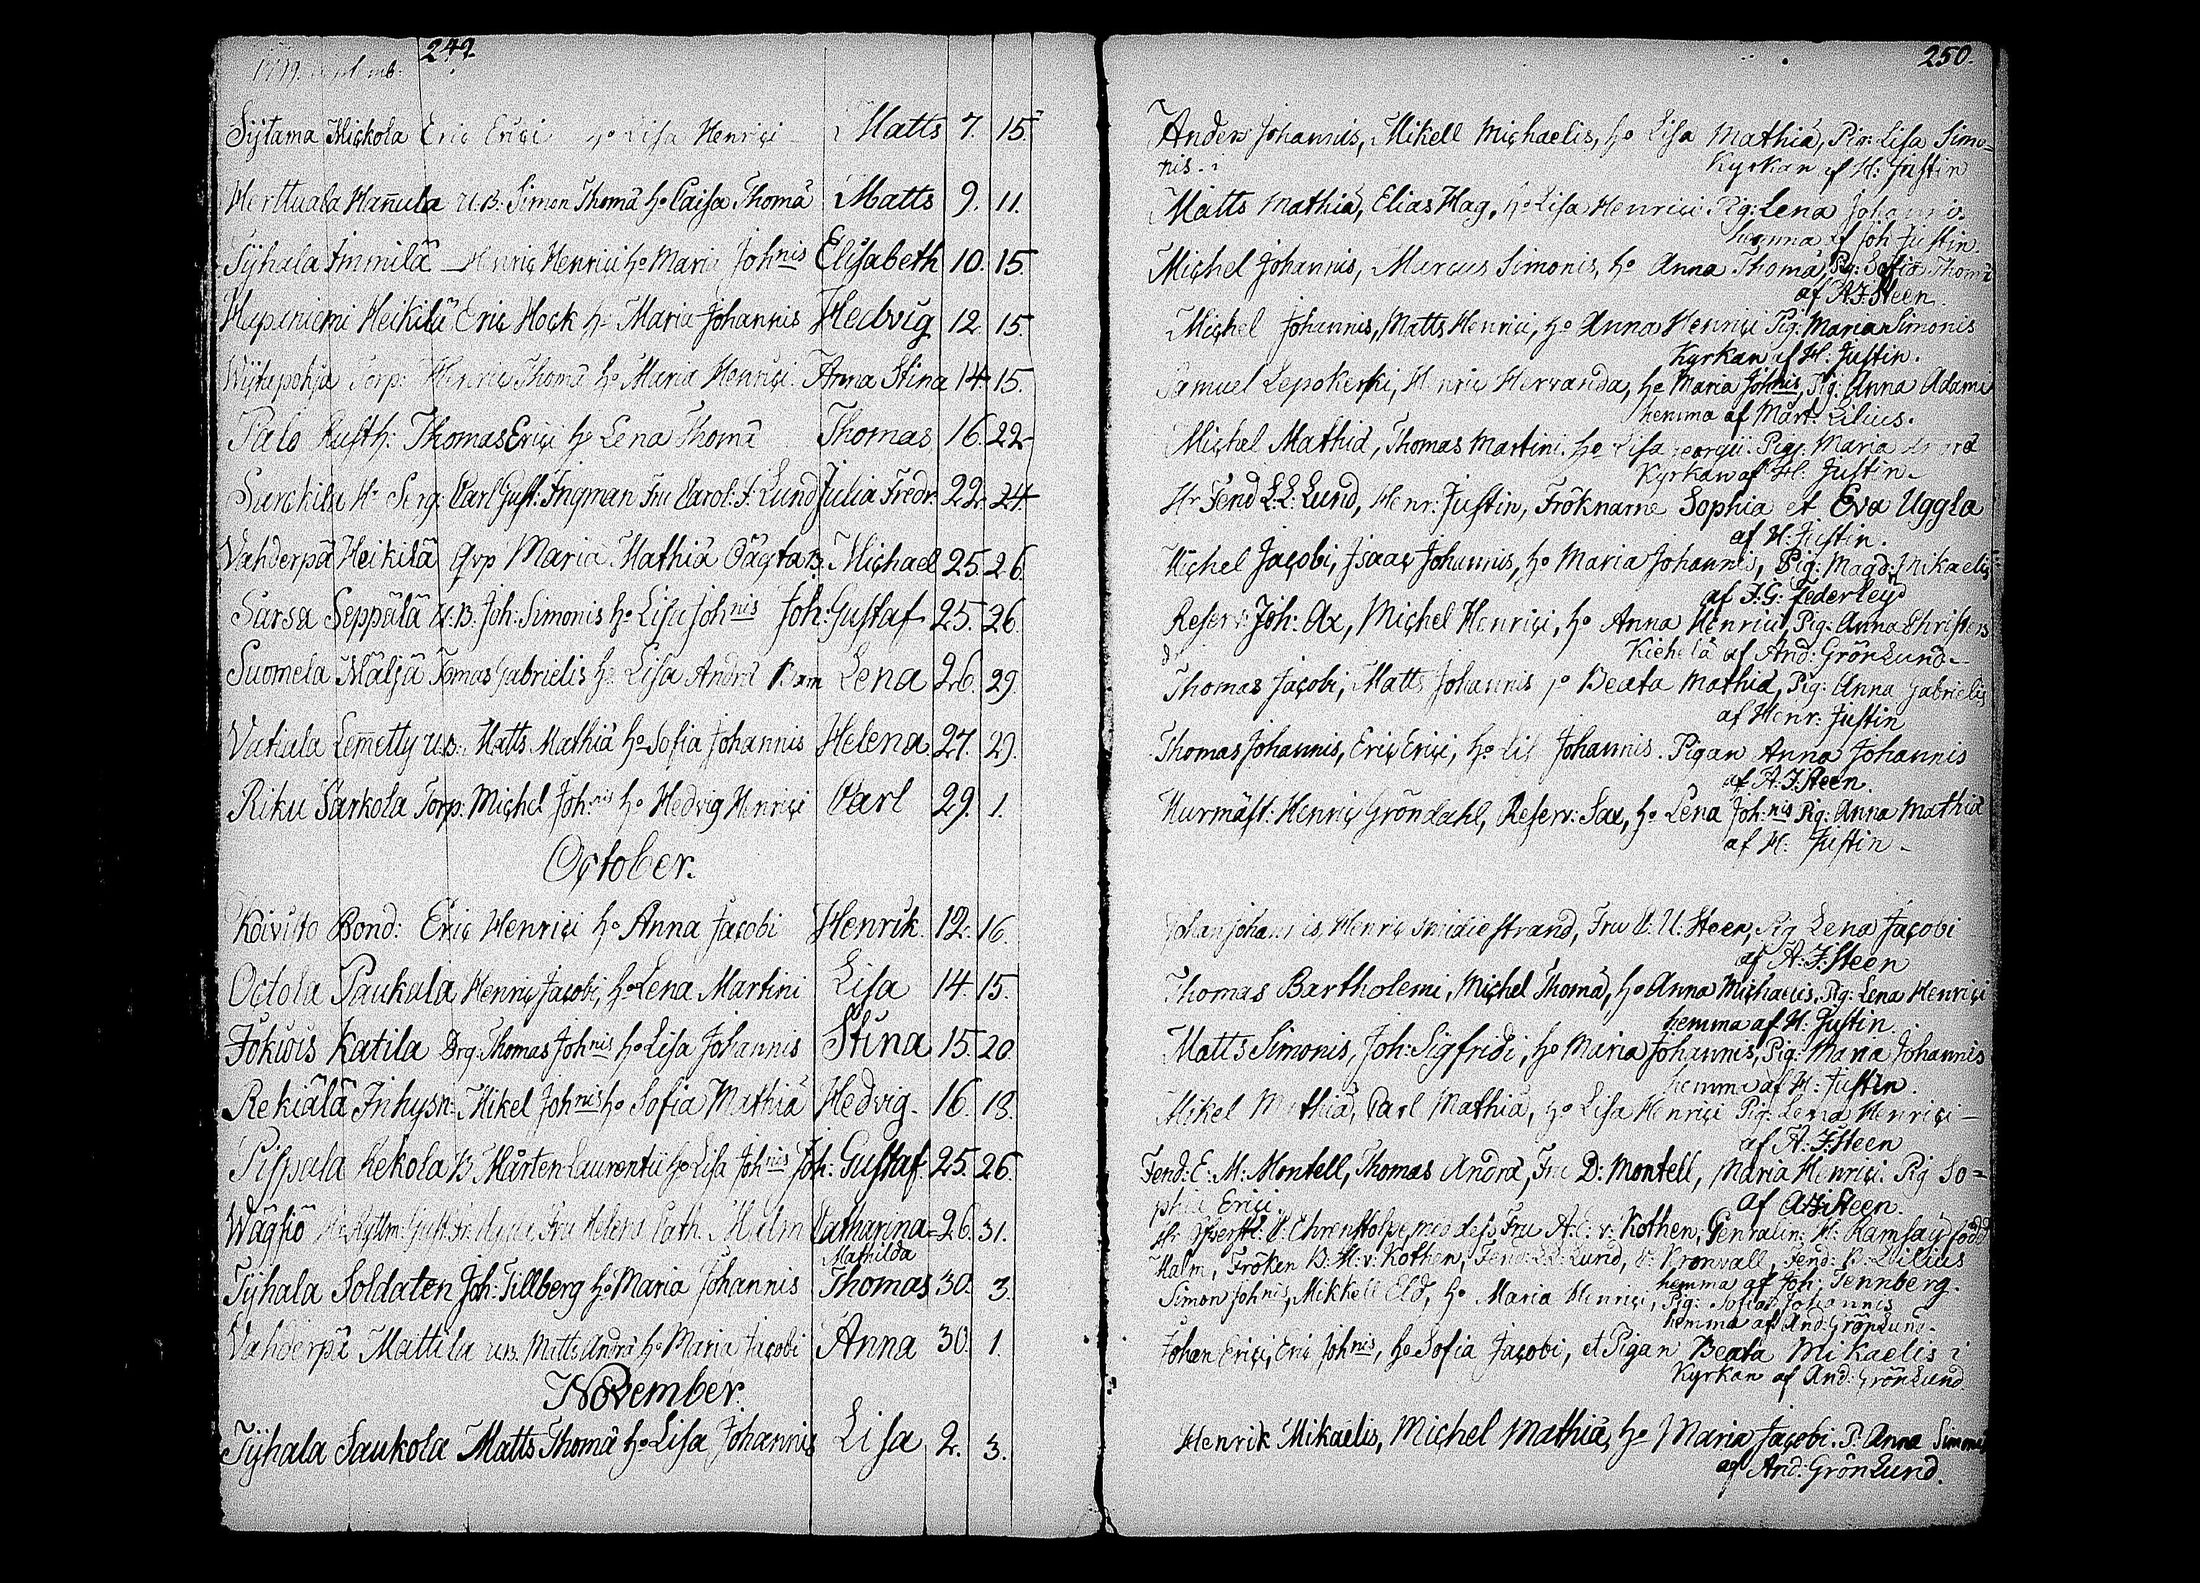 249.
Sijtama Mickola Eric Erici ho Lisa Henrici Matts 7. 15.
Herttuala Hannula U.B. Simon Thomæ ho Caisa Thomæ Matts 9. 11.
Tÿhala Immilä Henric Henrici ho Maria Johnis Elisabeth 10. 15.
Hapiniemi Heikilä Eric Hock ho Maria Johannis Hedvig 12. 15.
Torp: Henric Thomæ ho Maria Henrici Anna Stina 14. 15.
Palo Rusth: Thomas Erici ho Lena Thomæ Thomas 16. 22.
Sarckila Hr Serg: Carl Gust: Ingman Fru Carol: F: Lund Julia Fredr: 22. 24.
Vahderpä Heikilä Qvp Maria Mathiæ Oägta B. Michael 25. 26.
Sarsa Seppälä U.B: Joh: Simonis ho Lisa Johnis Joh: Gustaf 25. 26.
Suomela Mäljä Tomas Gabrielis ho Lisa Andræ Lena 26. 29.
Vatiala Lemetty U.B: Matts Mathiæ ho Sofia Johannis Helena 27. 29.
Riku Sarkola Torp. Michel Joh:nis ho Hedvig Henrici Carl 29. 1.
October.
Koivisto Bond: Eric Henrici ho Anna Jacobi Henrik 12. 16.
Octola Paukala Henric Jacobi, ho Lena Martini Lisa 14. 15.
Jokiois Katila Drg. Thomas Johnis ho Lisa Johannis Stina 15. 20
Rekiälä Inhysn: Mikel Johnis ho Sofia Mathiæ Hedvig 16. 18.
Pispala Kekola B. Mårten Laurentii ho Lisa Johnis Joh: Gustaf. 25. 26.
Wägsiö Hr Ryttm: Fru Helena Cath: Malm Catharina 26. 31.
Mathilda
Tÿhala Soldaten Joh: Tillberg ho Maria Johannis Thomas 30. 3.
Vahderpä Mattila U.B. Matts Andræ ho Maria Jacobi Anna 30. 1.
November.
Tÿhala Saukola Matts Thomæ ho Lisa Johannis Lisa 2. 3.
250.
Anders Johannis, Mikell Michaelis, ho Lisa Mathiæ, Pig: Lisa Simo-
nis. i Kyrkan af H: Justin
Matts Mathiæ, Elias Hag, ho Lisa Henrici Pig: Lena Johannis.
hemma af Joh Justin
Michel Johannis, Marcus Simonis, ho Anna Thomæ, Pig: Sofia Thomæ
af A:J:Steen.
Michel Johannis, Matts Henrici, ho Anna Henrici Pig: Maria Simonis
Kyrkan af H: Justin.
Samuel Lepokerki, Henric Hervanda, ho Maria Johnis, Pig: Anna Adami
hemma af Mårt: Lilius.
Michel Mathiæ, Thomas Martini. ho Lisa Georgii. Pig: Maria Andræ
Kyrkan af H. Justin.
Hr Fend L:L: Lund, Henr: Justin, Fröknarne Sophia et Eva Uggla
af H: Justin.
Michel Jacobi, Isaac Johannis, ho Maria Johannis, Pig: Magd: Mikaelis
af J.G: Federleÿ
Reserv: Joh: Ax, Michel Henrici, ho Anna Henrici, Pig: Anna Christers
dr af And: Grönlund
Thomas Jacobi, Matts Johannis ho Beata Mathiæ, Pig: Anna Gabrielis
af Henr: Justin
Thomas Johannis, Eric Erici, ho Lis Johannis. Pigan Anna Johannis
af A.J.Steen.
Murmäst: Henric Gröndahl, Reserv: Sax, ho Lena Joh:nis Pig: Anna Mathiæ
af H: Justin
Johan Johannis, Henric Smidiestrand, Fru U: Steen, Pig Lena Jacobi
af A.J:Steen
Thomas Bartholemi, Michel Thomæ, ho Anna Michaelis, Pig: Lena Henrici
hemma af H: Justin.
Matts Simonis, Joh: Sigfridi, ho Maria Johannis, Pig: Maria Johannis
hemma af H: Justin.
Mikel Mathiæ, Carl Mathiæ, ho Lisa Henrici Pig: Lena Henrici
af A: J:Steen
Fend: E: M: Montell, Thomas Andræ, Fru D: Montell, Maria Henrici Pig So=
phia Erici. af A:J:Steen.
Hr Öfverstl: C: Ehrenstolpe, med dess Fru A:E: v: Köthen, Generalin: H: Ramsaÿ född
Malm, Fröken B: H: v: Köthen, Fend: L:L: Lund, Kronvall, Fend: B: Lilius
hemma af Joh: Tennberg.
Simon Johnis, Mikkell Eld, ho Maria Henrici, Pig: Sofia Johannis
hemma af And: Grönlund.
Johan Erici, Eric Johnis, ho Sofia Jacobi, et Pigan Beata Mikaelis i
Kyrkan af And: Grönlund
Henrik Mikaelis, Michel Mathiæ, ho Maria Jacobi. P: Anna Simonis
af And: Grönlund.